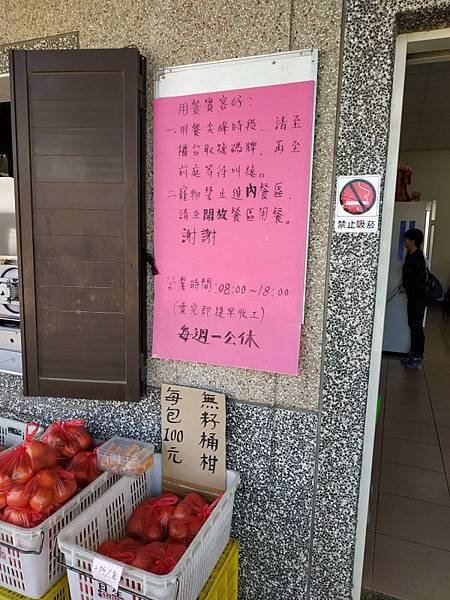 用餐賓客好：
一、用餐尖峰時段，請至
櫃台取號碼牌，再至
前庭等待叫號。
二、寵物禁止進內餐區，
請至開放餐區用餐。
謝謝
營業時間：08:00～18:00
(賣完即提早收工)
每週一公休
禁止吸菸
無籽桶柑
每包100元